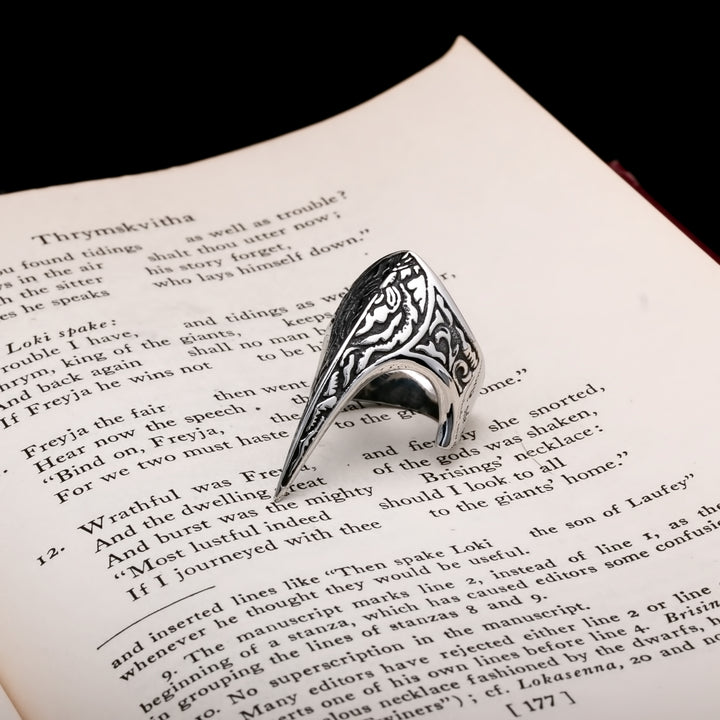 Thrymskvitha
ou found tidings as well as trouble?
in the air shalt thou utter now;
the sitter his story forget,
he speaks who lays himself down."
Loki spake:
rouble I have, and tidings as
hrym, king of the giants, keeps
And back again shall no man
If Freyja he wins not to be
Freyja the fair then went
Hear now the speech
"Bind on, Freyja, the
For we two must haste to the ome."
12. Wrathful was Freyja, and fiercely she snorted,
And the dwelling great of the gods was shaken,
And burst was the mighty Brisings' necklace:
"Most lustful indeed should I look to all
If I journeyed with thee to the giants' home."
and inserted lines like "Then spake Loki the son of Laufey"
whenever he thought they would be useful.
9. The manuscript marks line 2, instead of line 1, as the
beginning of a stanza, which has caused editors some confusi
in grouping the lines of stanzas 8 and 9.
10. No superscription in the manuscript.
Many editors have rejected either line 2 or line
erts one of his own lines before line 4. Brisin
ulous necklace fashioned by the dwarfs,
winers"); cf. Lokasenna, 20 and
[177]